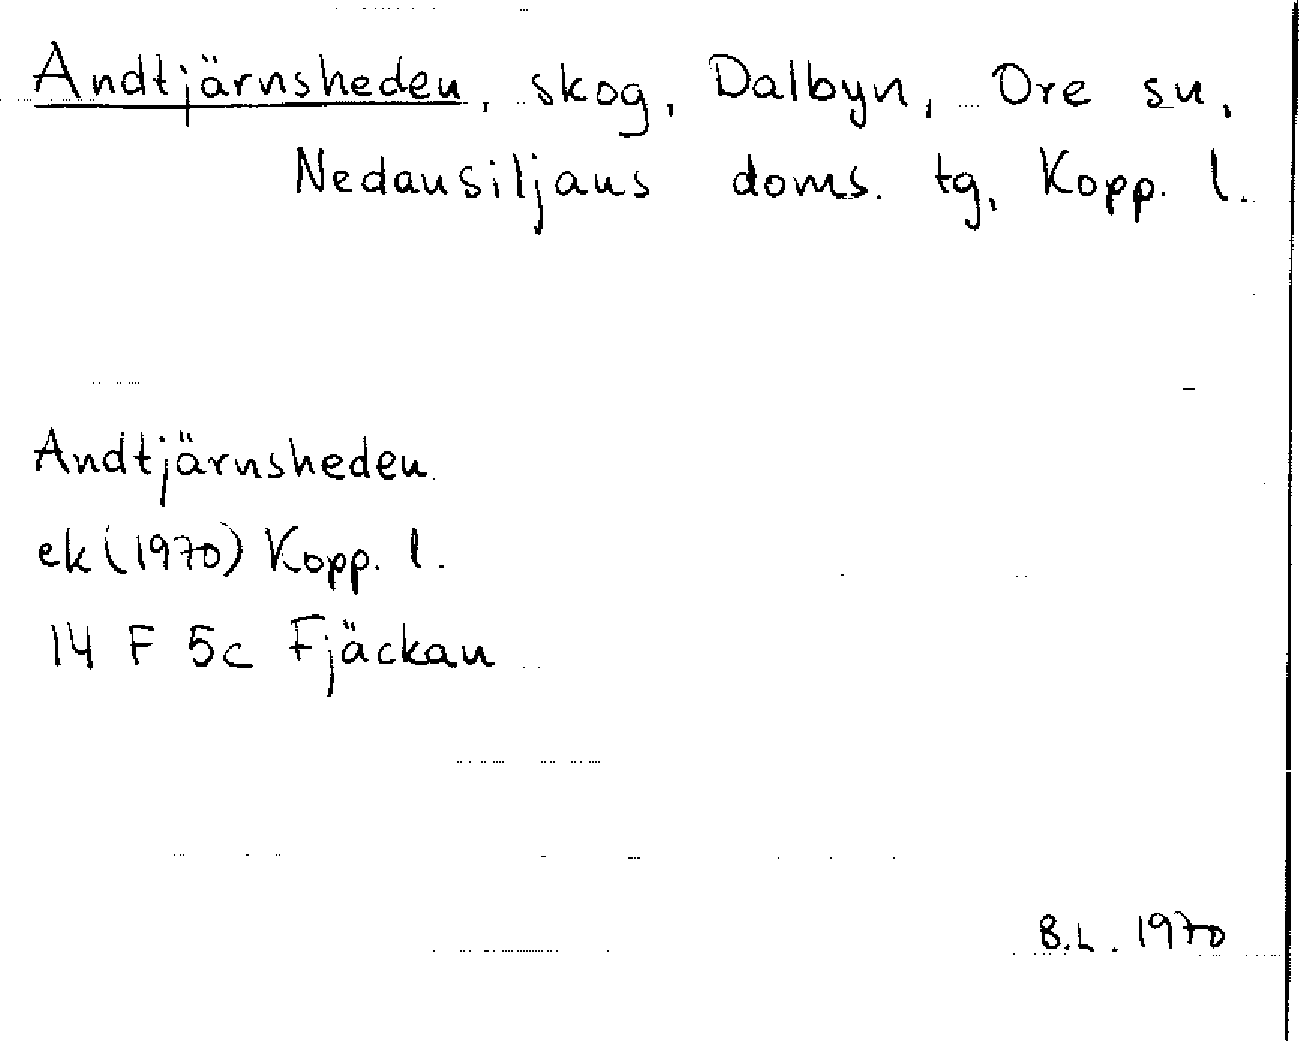 Andtjärnsheden, skog, Dalbyn, Ore sn,
Nedansiljans doms. tg, Kopp. l.
Andtjärnsheden
ek (1970) Kopp. l.
14 F 5c Fjäckan
B.L. 1970